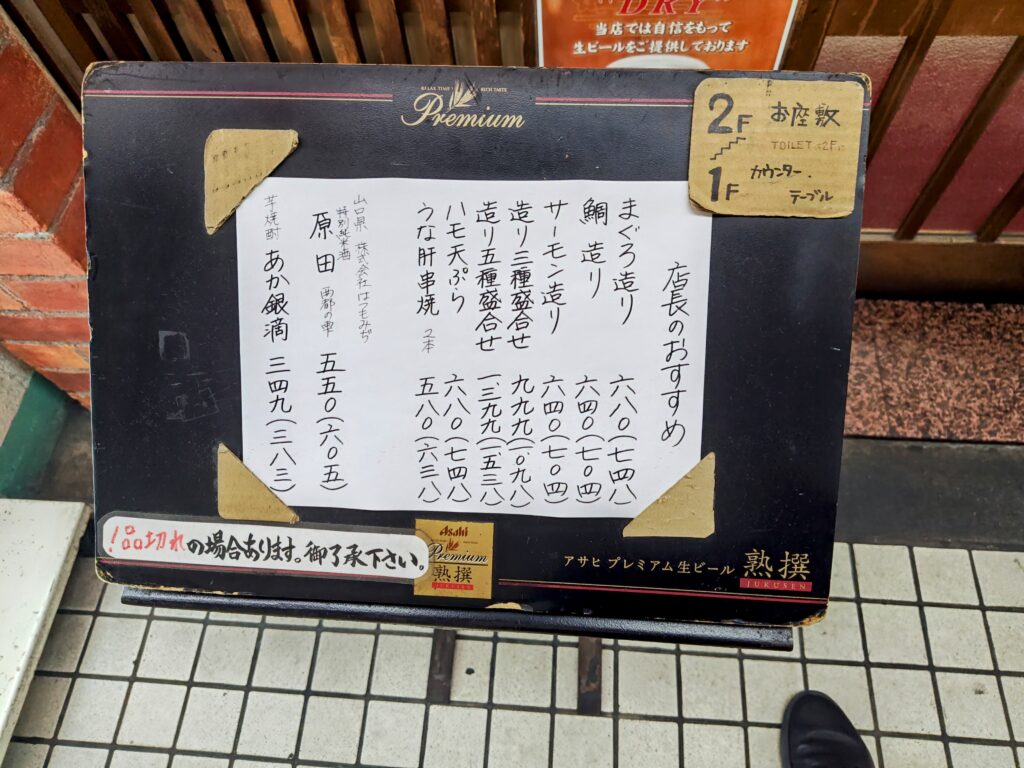 DRY
当店では自信をもって
生ビールをご提供しております
RELAX TIME RICH TASTE
Premium
2F お座敷
TOILET 2F
1F カウンター・
テーブル
店長のおすすめ
まぐろ造り 六八〇(七四八)
鯛 造り 六四〇(七〇四)
サーモン造り 六四〇(七〇四)
造り三種盛合せ 九九九(一〇九八)
造り五種盛合せ 一、三九九(一五三八)
ハモ天ぷら 六八〇(七四八)
うな肝串焼 2本 五八〇(六三八)
山口県 株式会社はつもみぢ
特別純米酒
原田 西都の雫 五五〇(六〇五)
芋焼酎 あか銀滴 三四九(三八三)
!品切れの場合あります。御了承下さい。
Asahi
Premium
熟撰
アサヒ プレミアム生ビール 熟撰
JUKUSEN